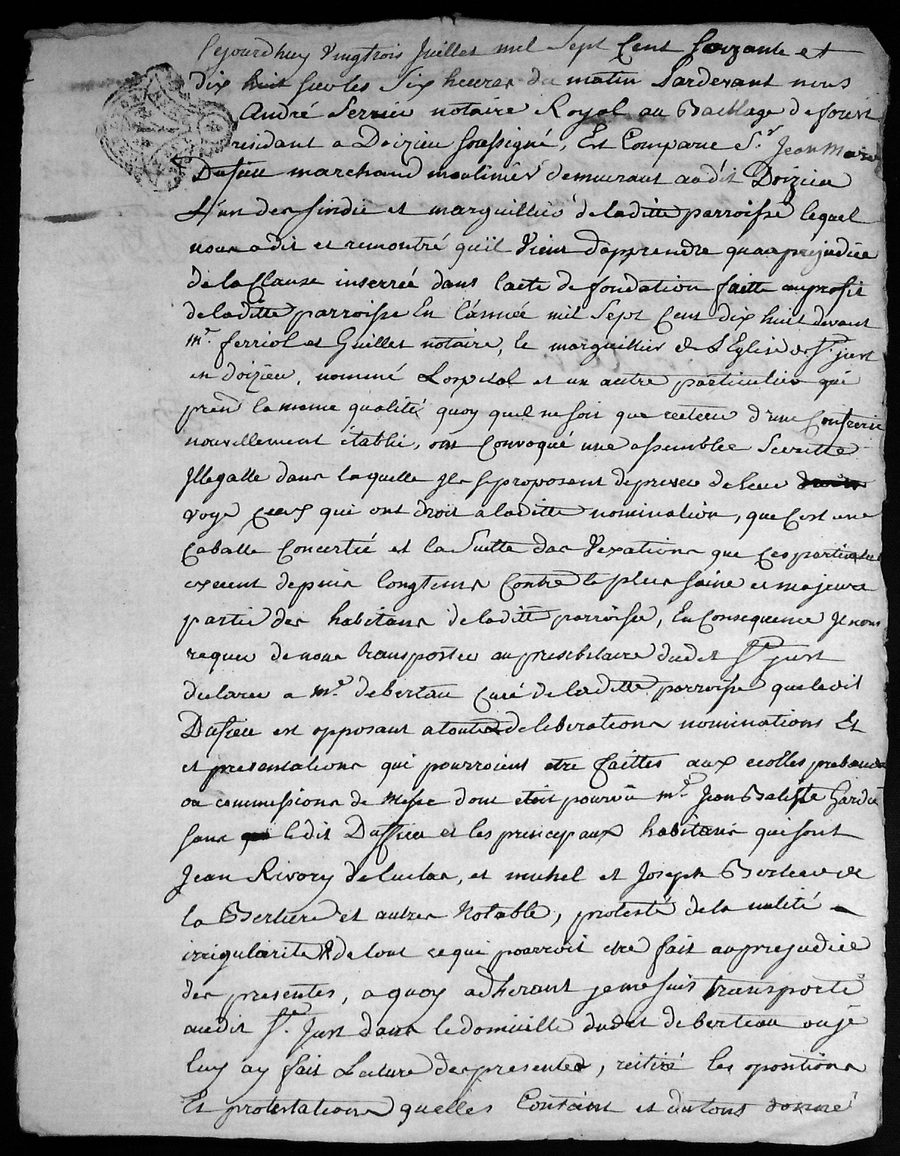 Cejourdhuy vingtrois Juillet mil Sept Cent Soixante et
dix huit sur les Six heures du matin Pardevant nous
André Perrier notaire Royal au Bailliage de forest
residant a Doizieu soussigné, Est Comparu Sr Jean Marc
Dufieu marchand moulinier demeurant audit Doizieu
L'un des sindic et marguilliers de laditte parroisse lequel
nous a dit et remontré quil vient d'apprendre quau prejudice
de la Clause inserrée dans l'acte de fondation faitte au profit
de laditte parroisse En l'année mil Sept Cent dix huit devant
mr ferriol et Guillet notaire, le marguillier de L'Eglise de st just
en doizieu, nommé Lospital et un autre particulier qui
prend la meme qualité quoy quil ne soit que recteur d'une Confrerie
nouvellement établie, ont Convoqué une assemblée Secrette
Illegalle dans laquelle Ils se proposent de priver de leur
voye Ceux qui ont droit a laditte nomination, que C'est une
Caballe Concertée et la Suitte des Vexations que Ces particuliers
exercent depuis longtems Contre la plus saine et majeure
partie des habitans de laditte parroisse, En Consequence Il nous
requis de nous transporter au presbitaire dudit st just
declarer a mr deberteau Curé de laditte parroisse que ledit
Dufieu est opposant a toutes deliberations nominations Et
et presentations qui pourroient etre faittes aux ecolles prebandes
ou commissions de Messe dont etoit pourvû mr Jean Batiste Gardie
sans ledit Dufieu et les principaux habitans qui sont
Jean Rivory de luclas, et michel et Joseph Berlier de
la Bertiere et autres Notable, protesté de la nulité
irrigularité & de tout ce qui pourroit etre fait au prejudice
des presentes, a quoy adherant je me suis transporté
audit st Just dans le domicille dudit deberteau ou je
luy ay fait Lecture des presentes, reitiré les opositions
Et protestations quelles Contient et du tout donné